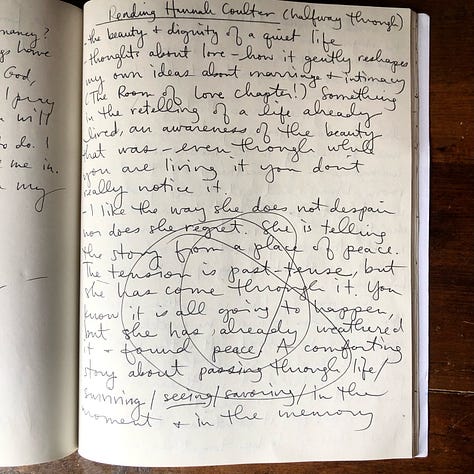 nancy?
gs have
God,
I pray
u will
to do. I
e me in.
my
Reading Hannah Coulter (halfway through)
- the beauty & dignity of a quiet life
- thoughts about love - how it gently reshapes
my own ideas about marriage & intimacy
(The Room of Love chapter!) Something
in the retelling of a life already
lived, an awareness of the beauty
that was - even though while
you are living it you don't
really notice it.
- I like the way she does not despair
nor does she regret. She is telling
the story from a place of peace.
The tension is past-tense, but
she has come through it. You
know it is all going to happen,
but she has already weathered
it & found peace. A comforting
story about passing through life/
surviving/seeing/savoring/in the
moment & in the memory